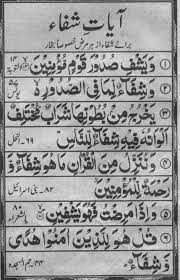 آیات شفاء
برائے شفاء از ہر مرض خصوصاً بخار
① وَيَشْفِ صُدُورَ قَوْمٍ مُّؤْمِنِينَ
② وَشِفَاءٌ لِّمَا فِي الصُّدُورِ
③ يَخْرُجُ مِنْ بُطُونِهَا شَرَابٌ مُّخْتَلِفٌ
اَلْوَانُهُ فِيهِ شِفَاءٌ لِّلنَّاسِ ۶۹۔ النحل
④ وَنُنَزِّلُ مِنَ الْقُرْآنِ مَا هُوَ شِفَاءٌ وَّ
رَحْمَةٌ لِّلْمُؤْمِنِينَ ۸۲۔ بنی اسرائیل
⑤ وَإِذَا مَرِضْتُ فَهُوَ يَشْفِينِ ۸۰ الشعراء
⑥ قُلْ هُوَ لِلَّذِينَ اٰمَنُوا هُدًى
وَّشِفَاءٌ ۴۴۔ حٰم السجدہ